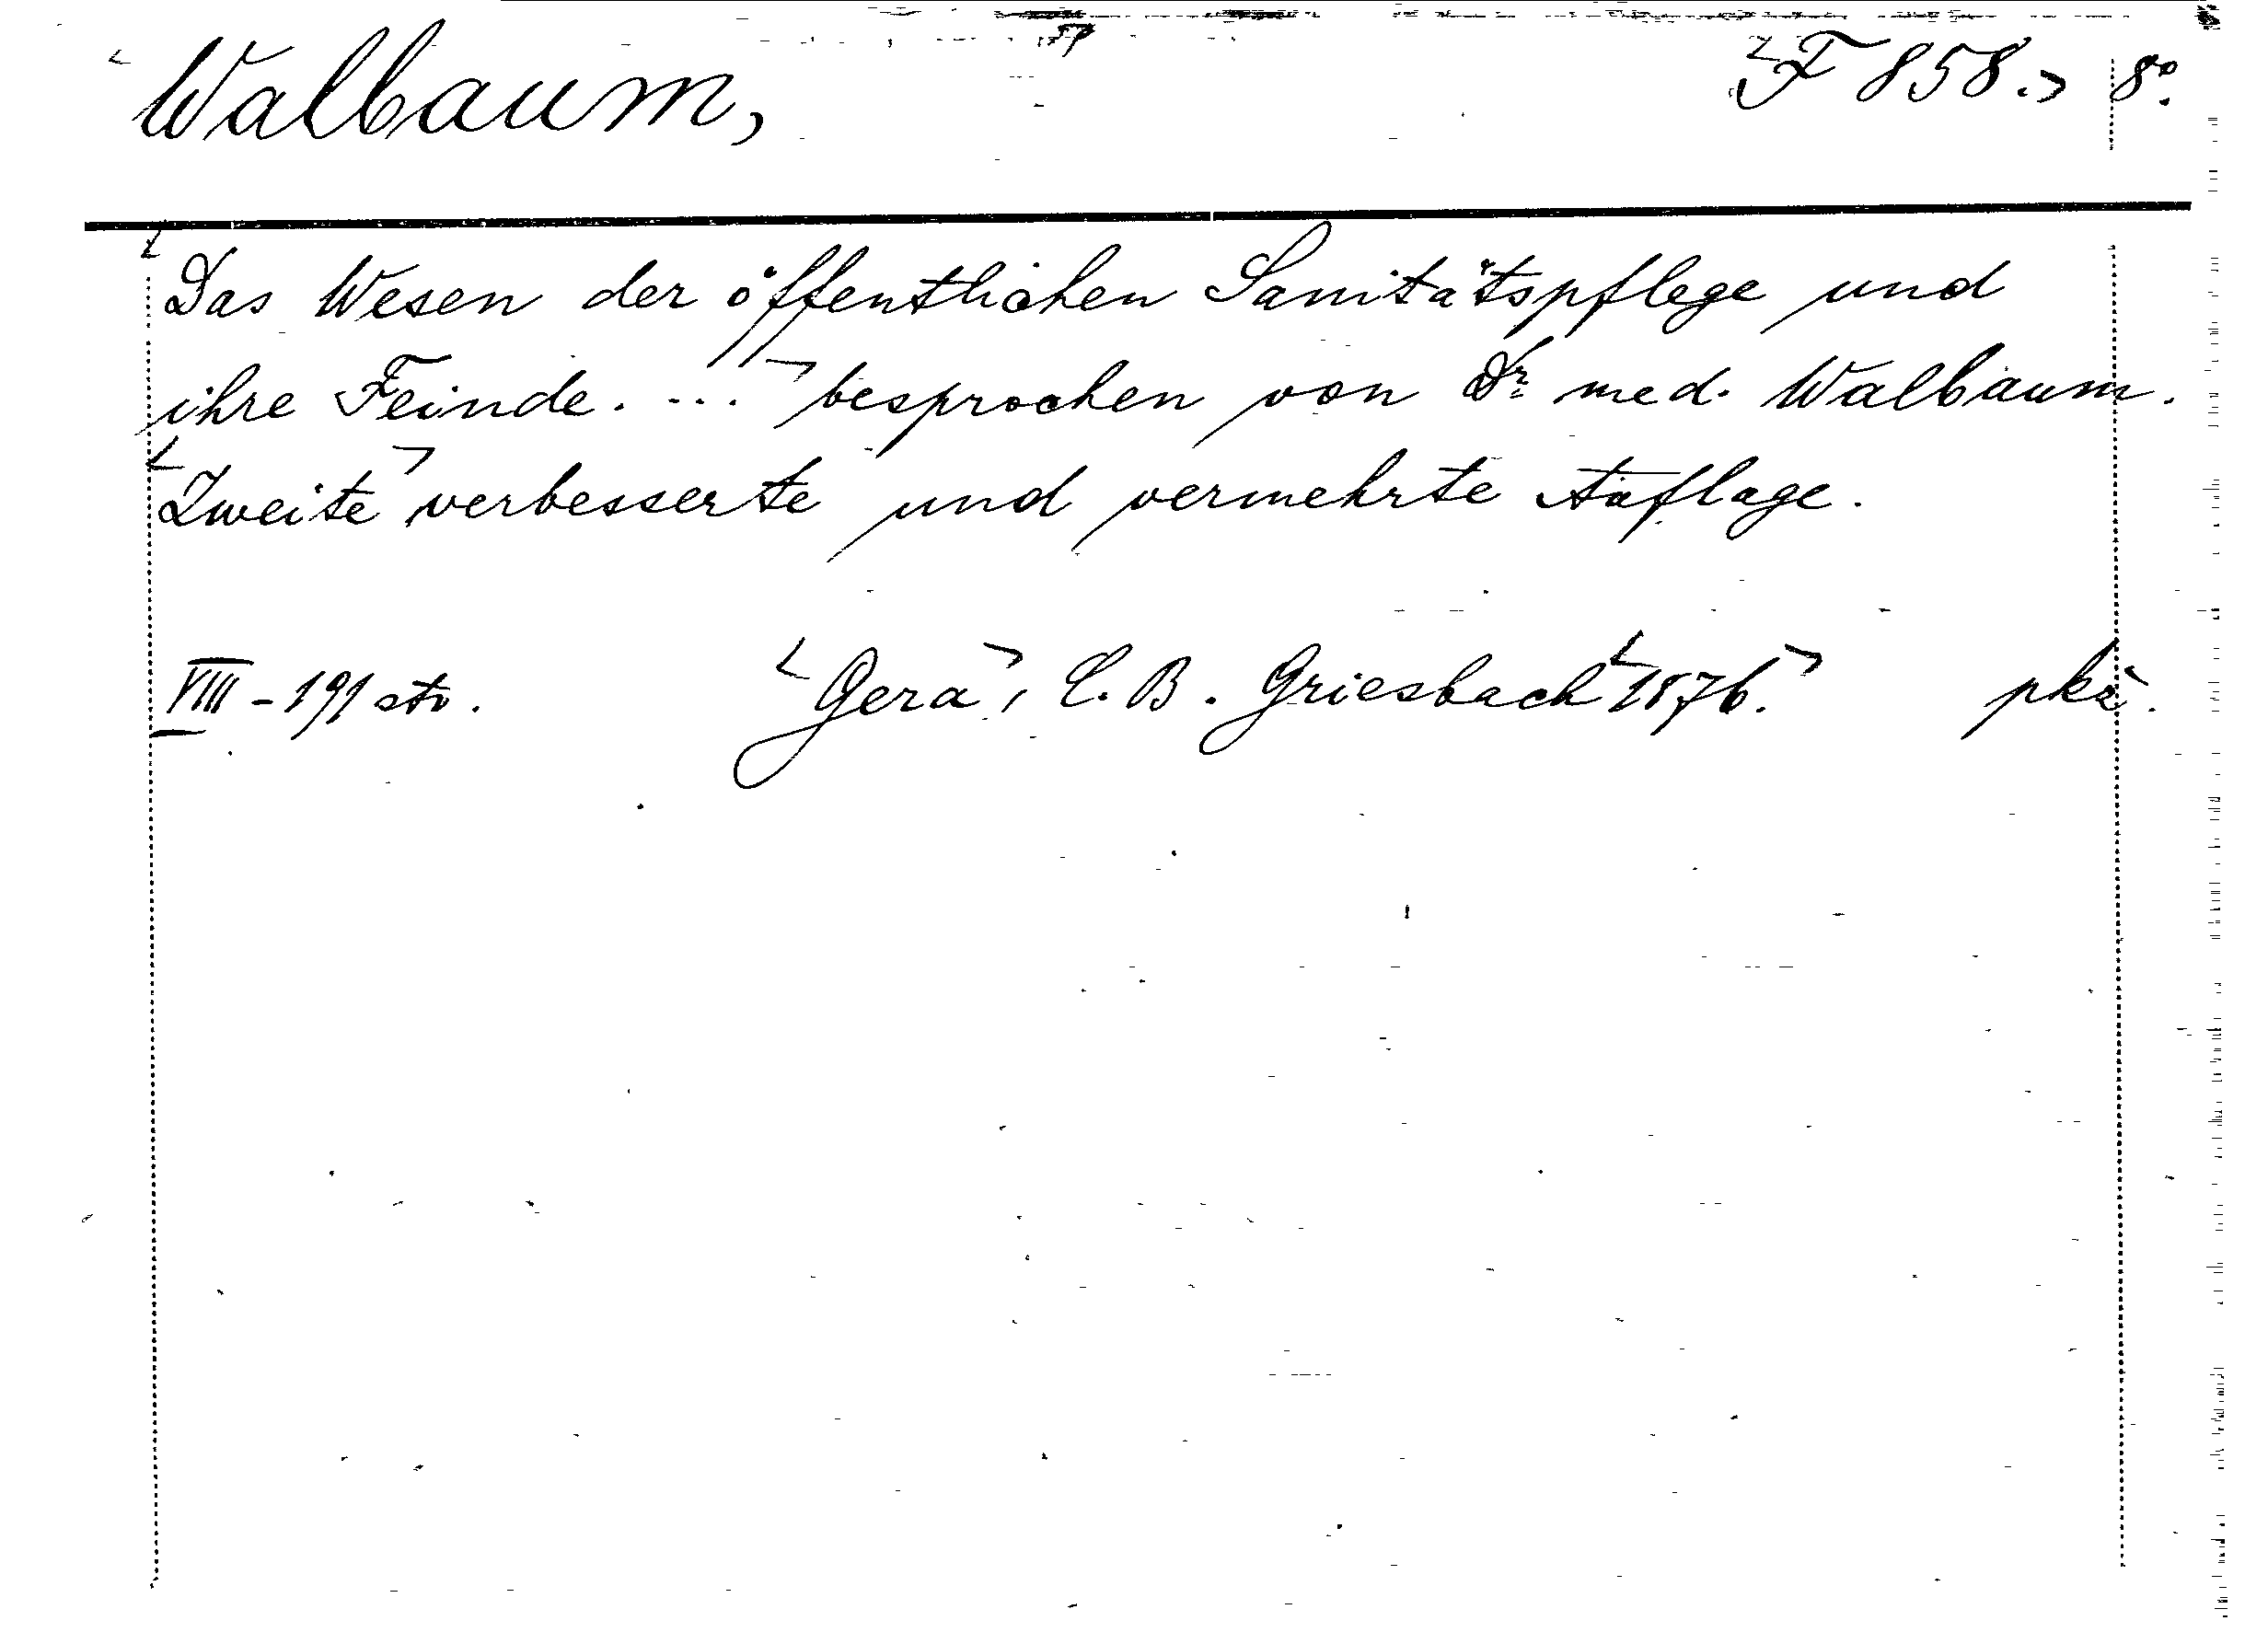 Walbaum,
F 858. 8°.
Das Wesen der öffentlichen Sanitätspflege und
ihre Feinde. ... besprochen von Dr. med. Walbaum.
Zweite verbesserte und vermehrte Auflage.
VIII - 191 str. Gera, C. B. Griesbach 1876.